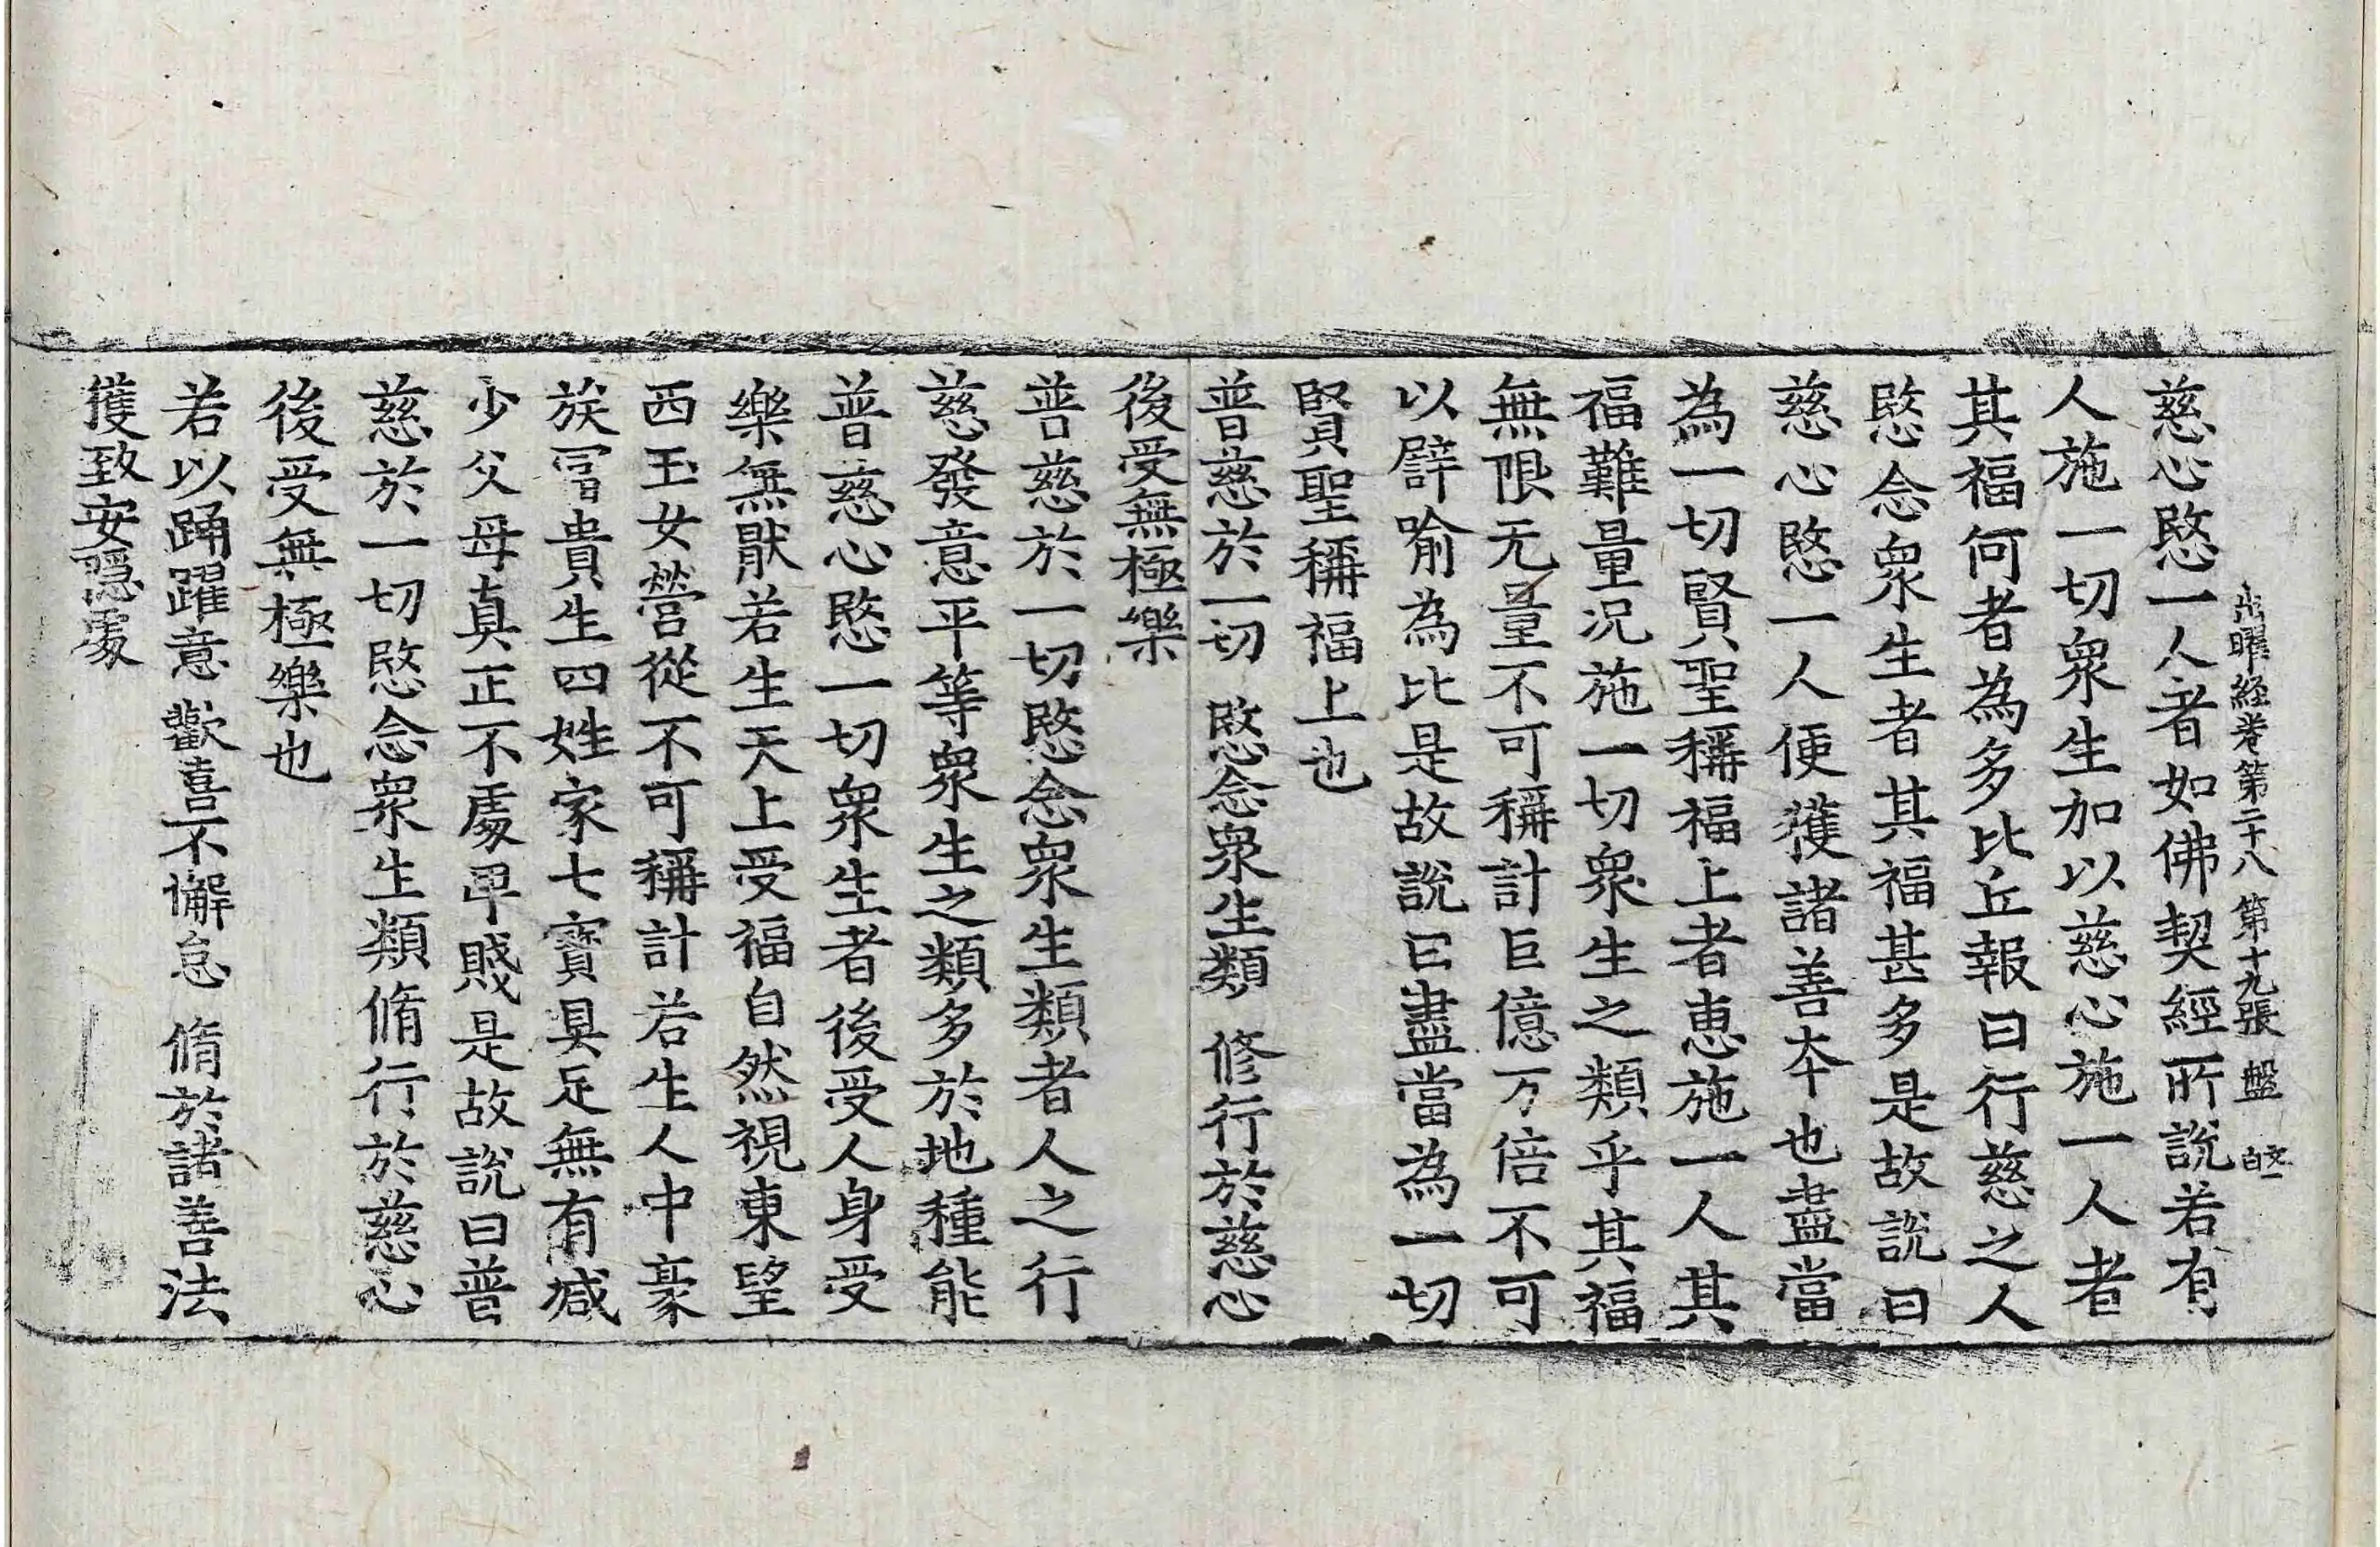 出曜経卷第二十八 第十九張 盤
慈心愍一人者如佛契經所說若有
人施一切衆生加以慈心施一人者
其福何者為多比丘報曰行慈之人
愍念衆生者其福甚多是故說曰
慈心愍一人便獲諸善本也盡當
為一切賢聖稱福上者惠施一人其
福難量況施一切衆生之類乎其福
無限无量不可稱計巨億万倍不可
以譬喻為比是故說曰盡當為一切
賢聖稱福上也
普慈於一切 愍念衆生類 修行於慈心
後受無極樂
普慈於一切愍念衆生類者人之行
慈發意平等衆生之類多於地種能
普慈心愍一切衆生者後受人身受
樂無猒若生天上受福自然視東望
西玉女營從不可稱計若生人中豪
族冨貴生四姓家七寶具足無有减
少父母真正不處卑賤是故說曰普
慈於一切愍念衆生類脩行於慈心
後受無極樂也
若以踊躍意 歡喜不懈怠 脩於諸善法
獲致安隱處